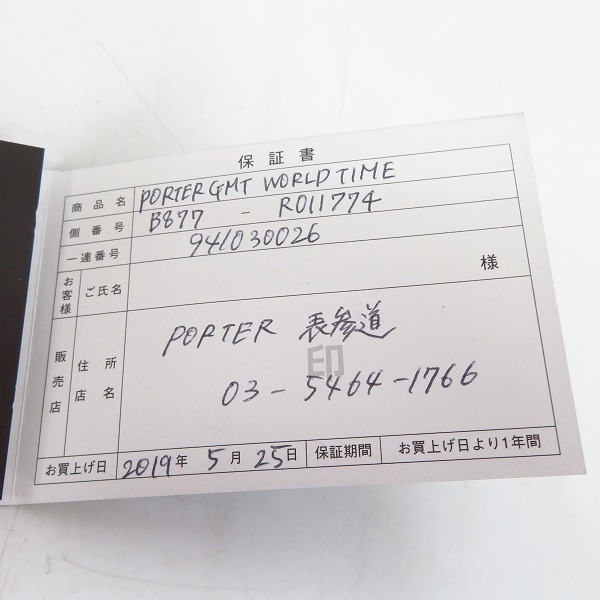 保証書
商品名 PORTER GMT WORLD TIME
側番号 B877 - R011774
一連番号 941030026
お客様 ご氏名 様
販売店 住所 店名 PORTER 表参道
印
03-5464-1766
お買上げ日 2019年 5月 25日 保証期間 お買上げ日より1年間